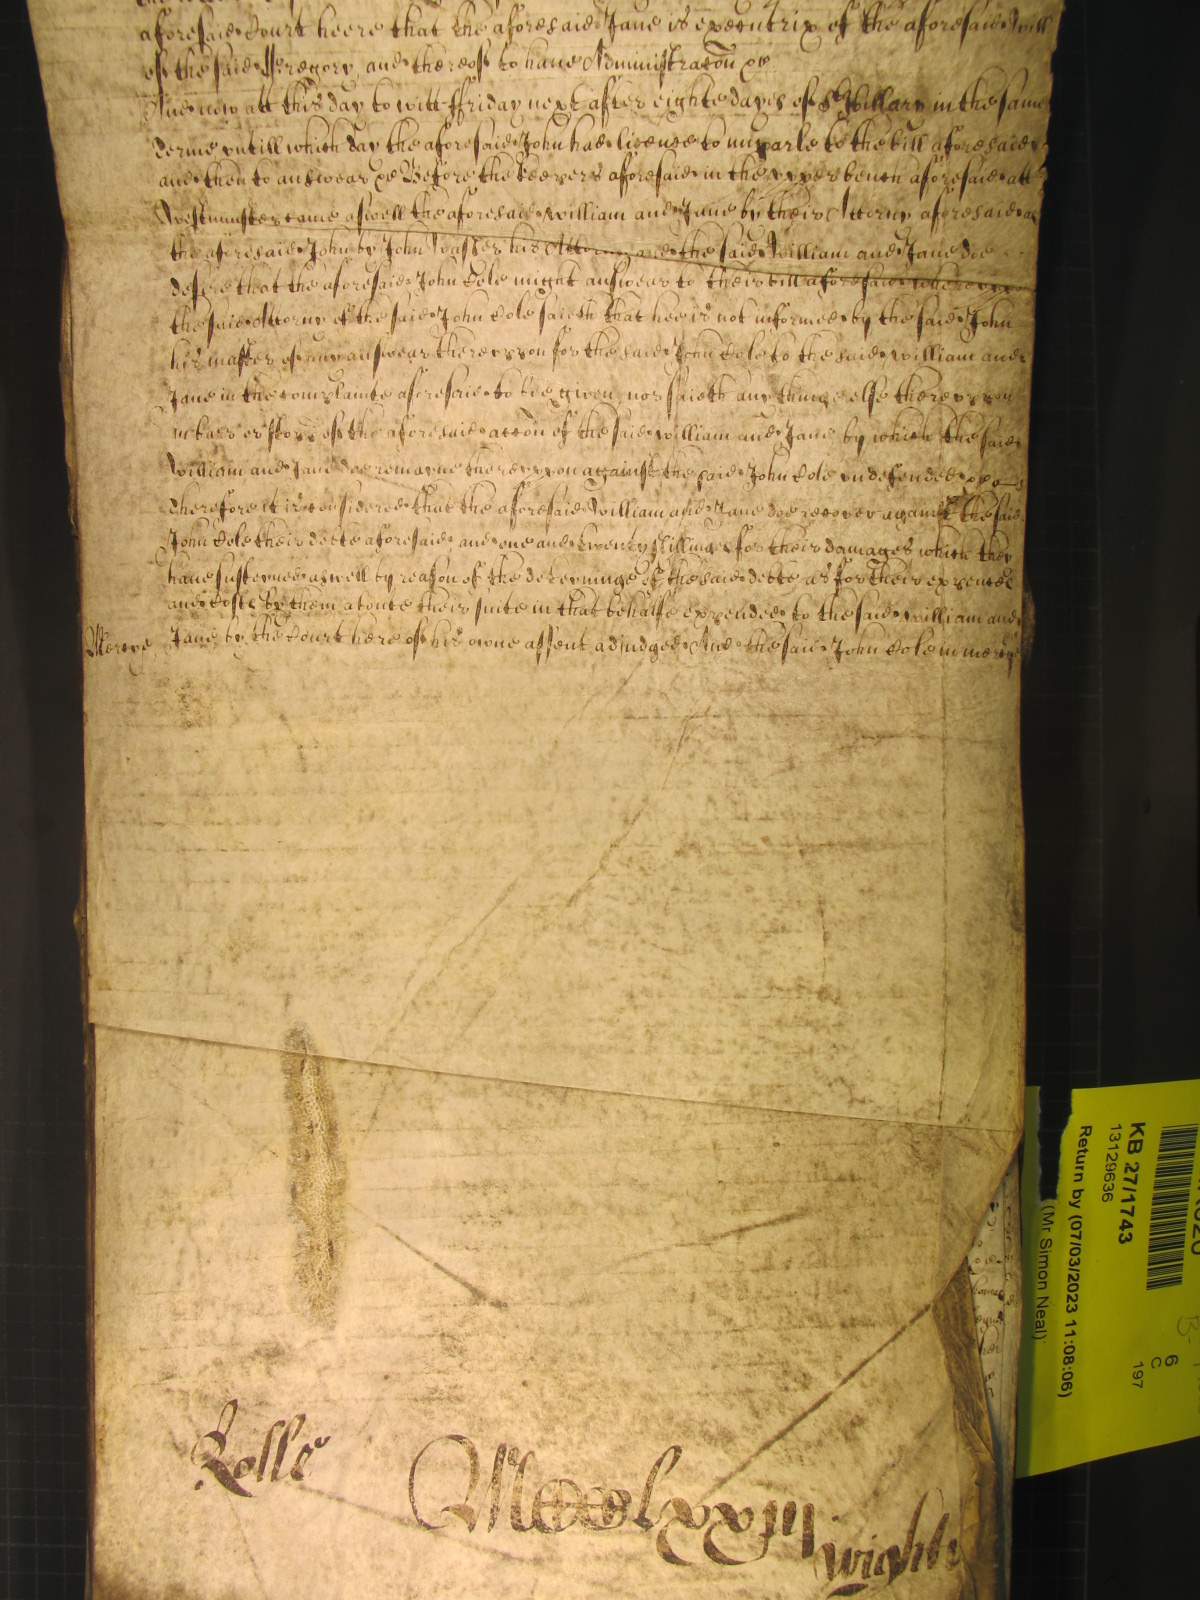 aforesaid Court heere that the aforesaid Jane is executrix of the aforesaid Will
of the said Gregory and thereof to have Administracon &c
And now att this day to witt ffriday next after eighte dayes of St Hillary in the same
Terme untill which day the aforesaid John had licence to imparle to the bill aforesaid
and then to answear &c Before the Keepers aforesaid in the upper bench aforesaid att
Westminster came aswell the aforesaid William and Jane by their Attorny aforesaid as
the aforesaid John by John his Attorny and the said William and Jane doe
desire that the aforesaid John Cole might answear to their bill aforesaid whereuppon
the said Attorny of the said John Cole saieth that hee is not informed by the said John
his master of any answear thereuppon for the said John Cole to the said William and
Jane in the complainte aforesaid to bee given nor saieth any thinge else thereuppon
in barr or of the aforesaid accon of the said William and Jane by which the said
William and Jane doe remayne thereuppon against the said John Cole undefended &c
Therefore it is considered that the aforesaid William and Jane doe recover against the said
John Cole their debte aforesaid and one and twenty shillings for their damages which they
have susteyned aswell by reason of the deteyninge of the said debte as for their expences
and Costs by them aboute their suite in that behalfe expended to the said William and
Mercye Jane by the Court here of his owne assent adjudged And the said John Cole in mercye
Rolle
Wight
KB 27/1743
13129636
Return by (07/03/2023 11:08:06)
(Mr Simon Neal)
6
C
197